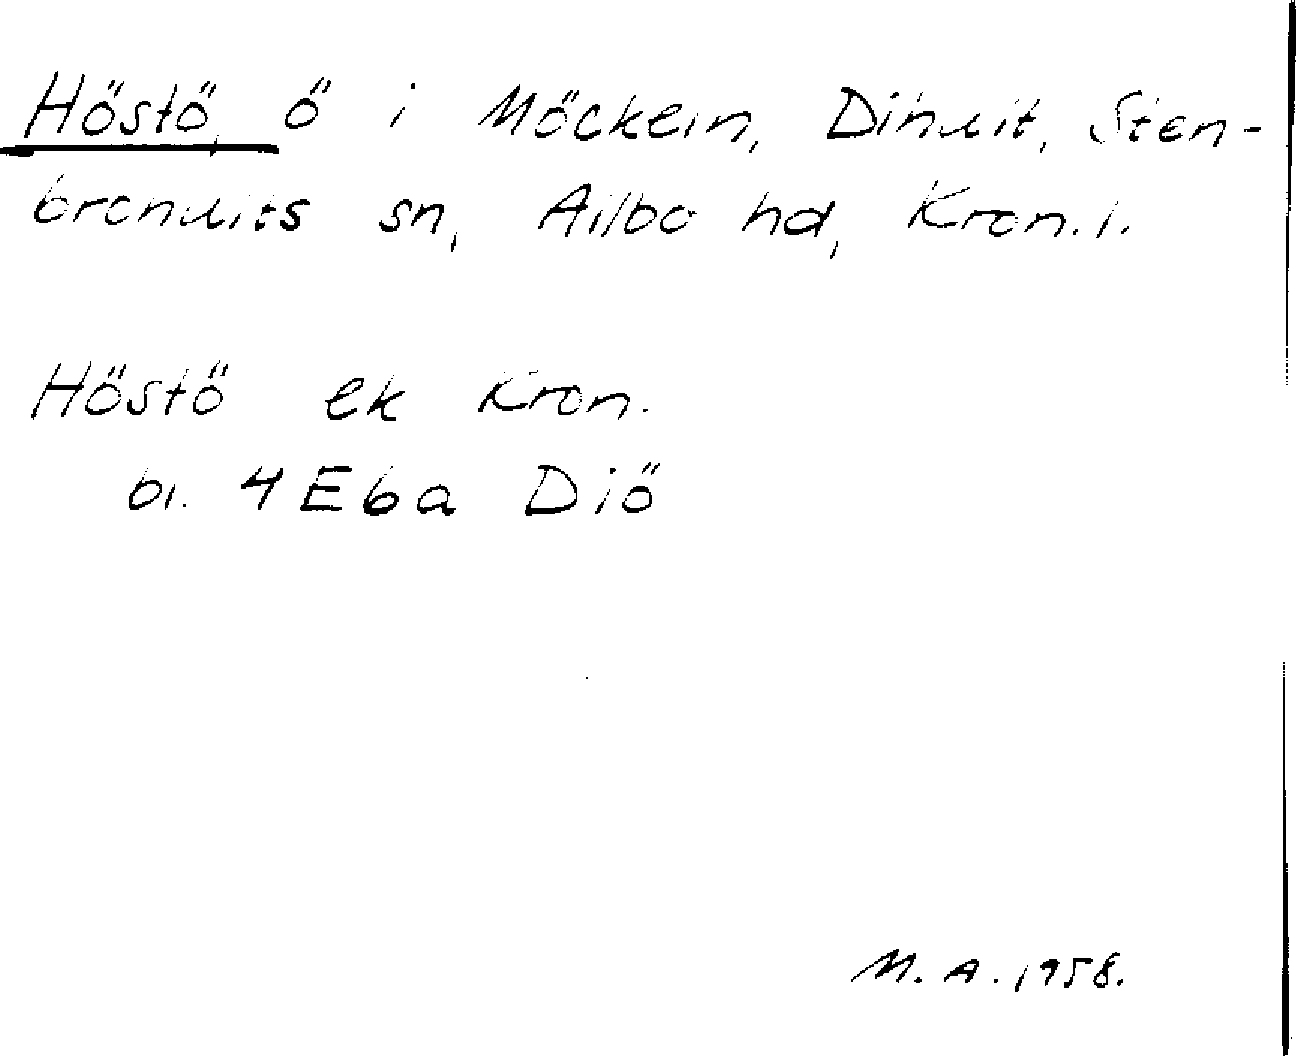 Höstö, ö i Möckeln, Dihult, Sten-
brohults sn, Allbo hd, Kron. l.
Höstö ek Kron.
bl. 4 E 6 a Diö
M. A. 1958.